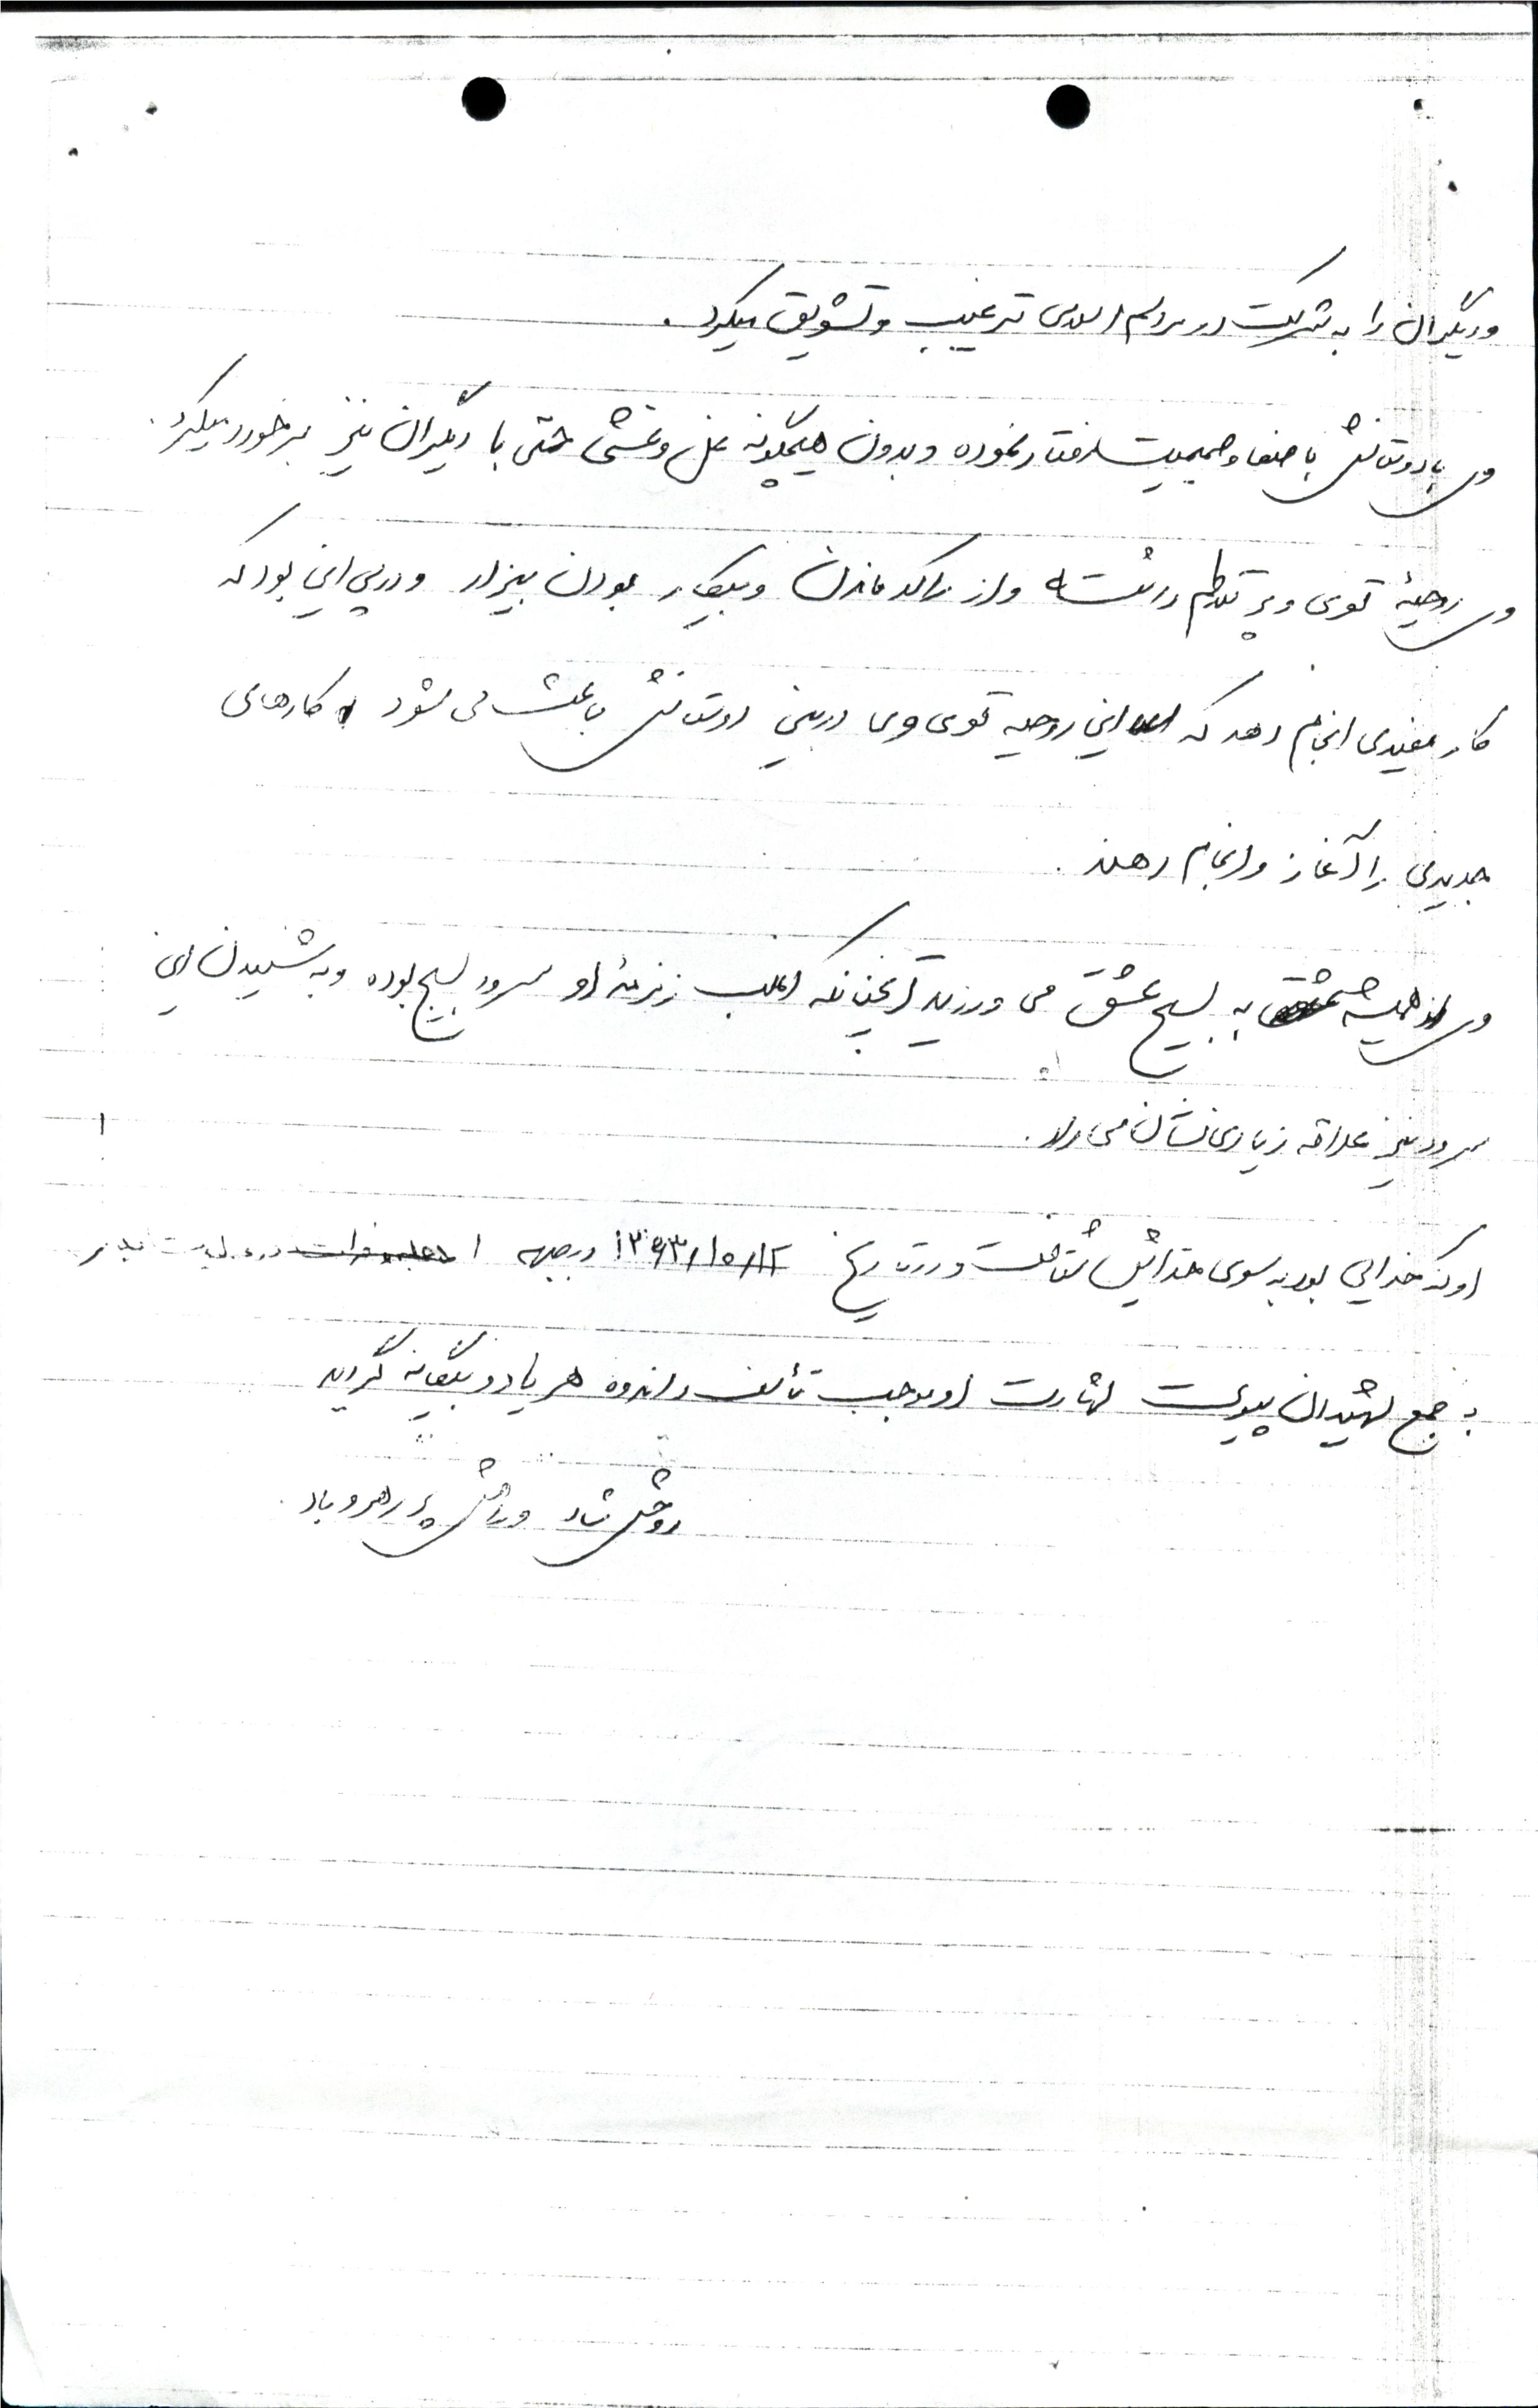 ودیگران را به شرکت در مراسم اسلامی ترغیب و تشویق میکرد.
وی با دوستانش با صفا و صمیمیت رفتار نموده و بدون هیچگونه غل و غشی حتی با دیگران نیز برخورد میکرد.
وی روحیهٔ قوی و پر تلاطم داشته و از راکد ماندن و بیکار بودن بیزار و در پی این بود که
کار مفیدی انجام دهد که این روحیه قوی وی در بین دوستانش باعث می شود کارهای
جدیدی را آغاز و انجام دهند.
وی همیشه به بسیج عشق می ورزید آنچنانکه اغلب زمزمهٔ او سرود بسیج بوده و به شنیدن این
سرود نیز علاقه زیادی نشان می داد.
او که خدایی بود به سوی خدائیش شتافت و در تاریخ درجبهه
به جمع شهیدان پیوست شهادت او موجب تأسف و اندوه هر یار و بیگانه گردید
روحش شاد و راهش پر رهرو باد.